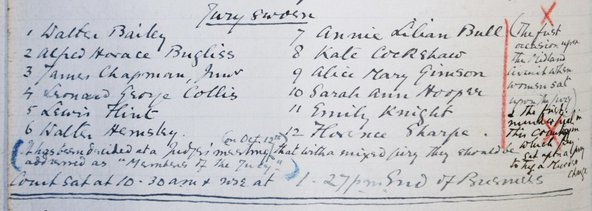 Jury sworn
1 Walter Bailey
2 Alfred Horace Bugliss
3 James Chapman, Junr
4 Leonard George Collis
5 Lewis Flint
6 Walter Hemsley.
7 Annie Lilian Bull
8 Kate Cockshaw
9 Alice Mary Gimson
10 Sarah Ann Hooper
11 Emily Knight
12 Florence Sharpe.
(The first
occasion upon
the Midland
Circuit when
women sat
upon the jury)
& the first
in this Country
in which
sat upon a jury
to try a Murder
charge
(on Oct. 12th)
It was decided at a Judges' meeting that with a mixed jury they should be
addressed as "Members of the Jury".
Court sat at 10-30 am & rose at 1-27 pm End of Business